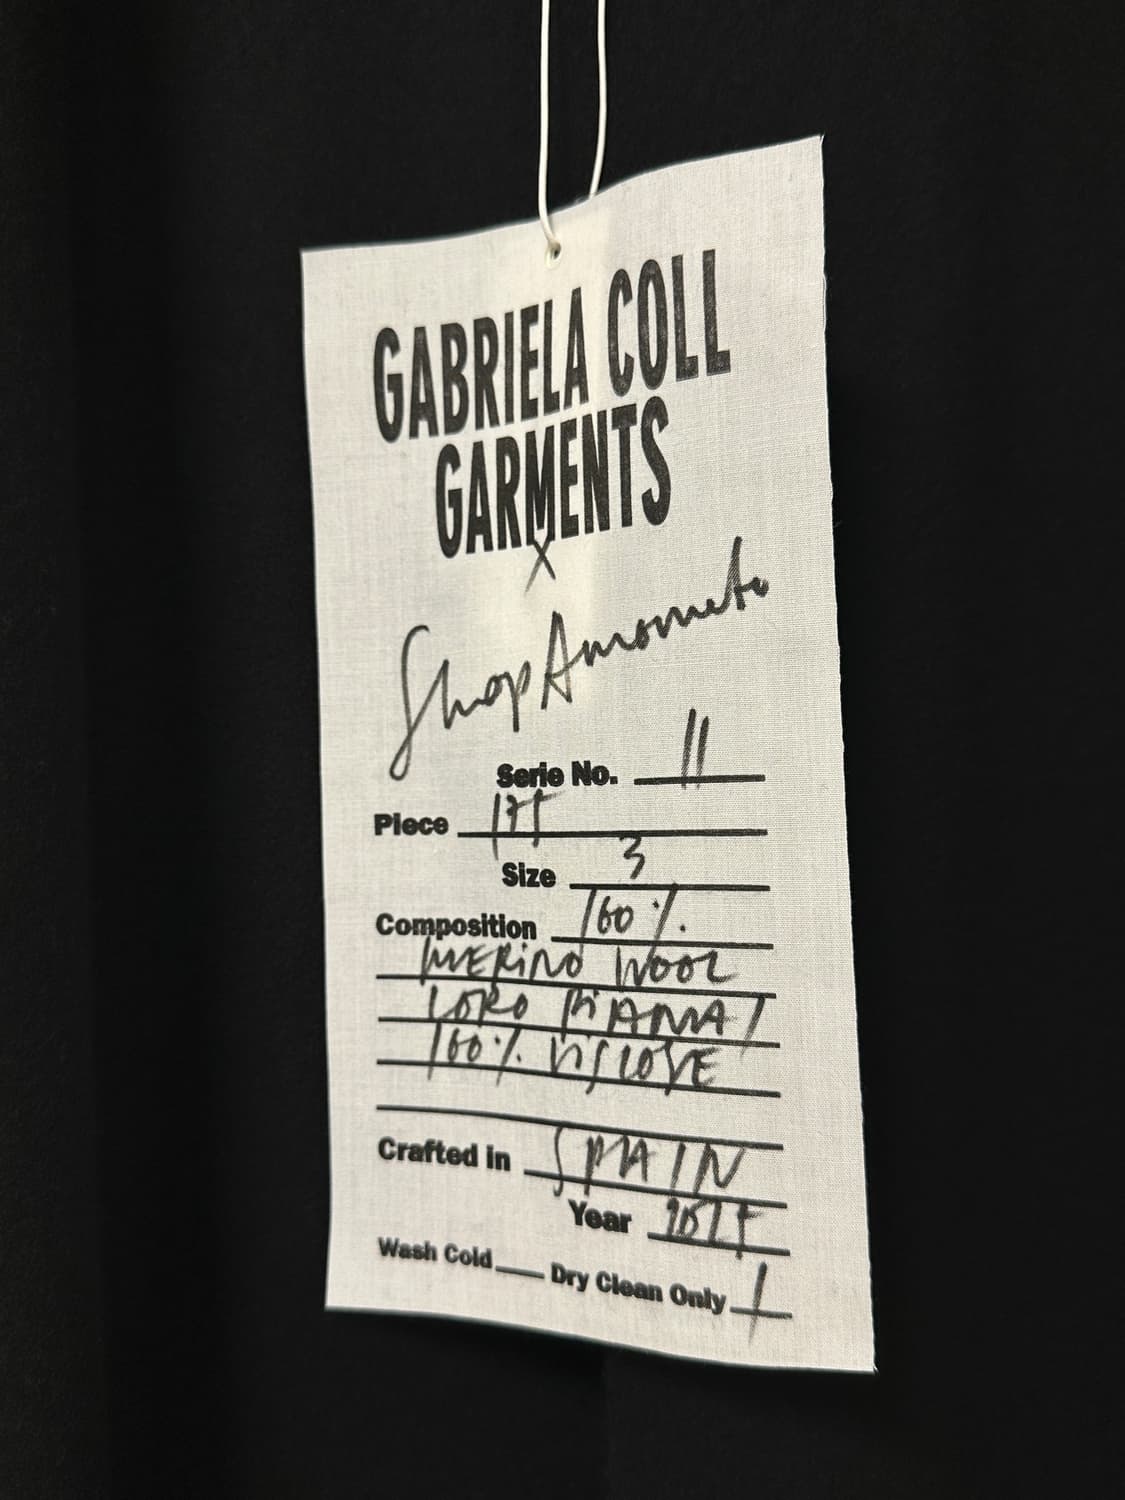 GABRIELA COLL
GARMENTS
X
Shop Amomento
Serie No. 11
Piece
Size 3
Composition 100%
MERINO WOOL
LORO PIANA /
100% VISCOSE
Crafted in SPAIN
Year
Wash Cold Dry Clean Only